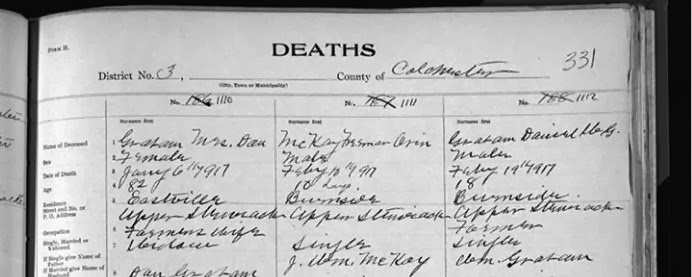 FORM H.
DEATHS
331
District No. 3, County of Colchester
(City, Town or Municipality)
No. 186 1110 No. 187 1111 No. 188 1112
Surname first Surname first Surname first
Name of Deceased 1 Graham Mrs. Dan McKay Freeman Orin Graham Daniel
Sex 2 Female Male Male
Date of Death 3 Jany 6 1917 Feby 1917 Feby 19 1917
Age 4 82 10 days 18
Residence 5 Eastville Burnside Burnside
Street and No. or
P. O. Address Upper Stewiacke Upper Stewiacke Upper Stewiacke
Occupation 6 Farmers wife Farmer
Single, Married or 7 Widow Single Single
Widowed
If Single give Name of J. Wm. McKay Wm. Graham
Father
If Married give Name of 8 Dan Graham
Husband